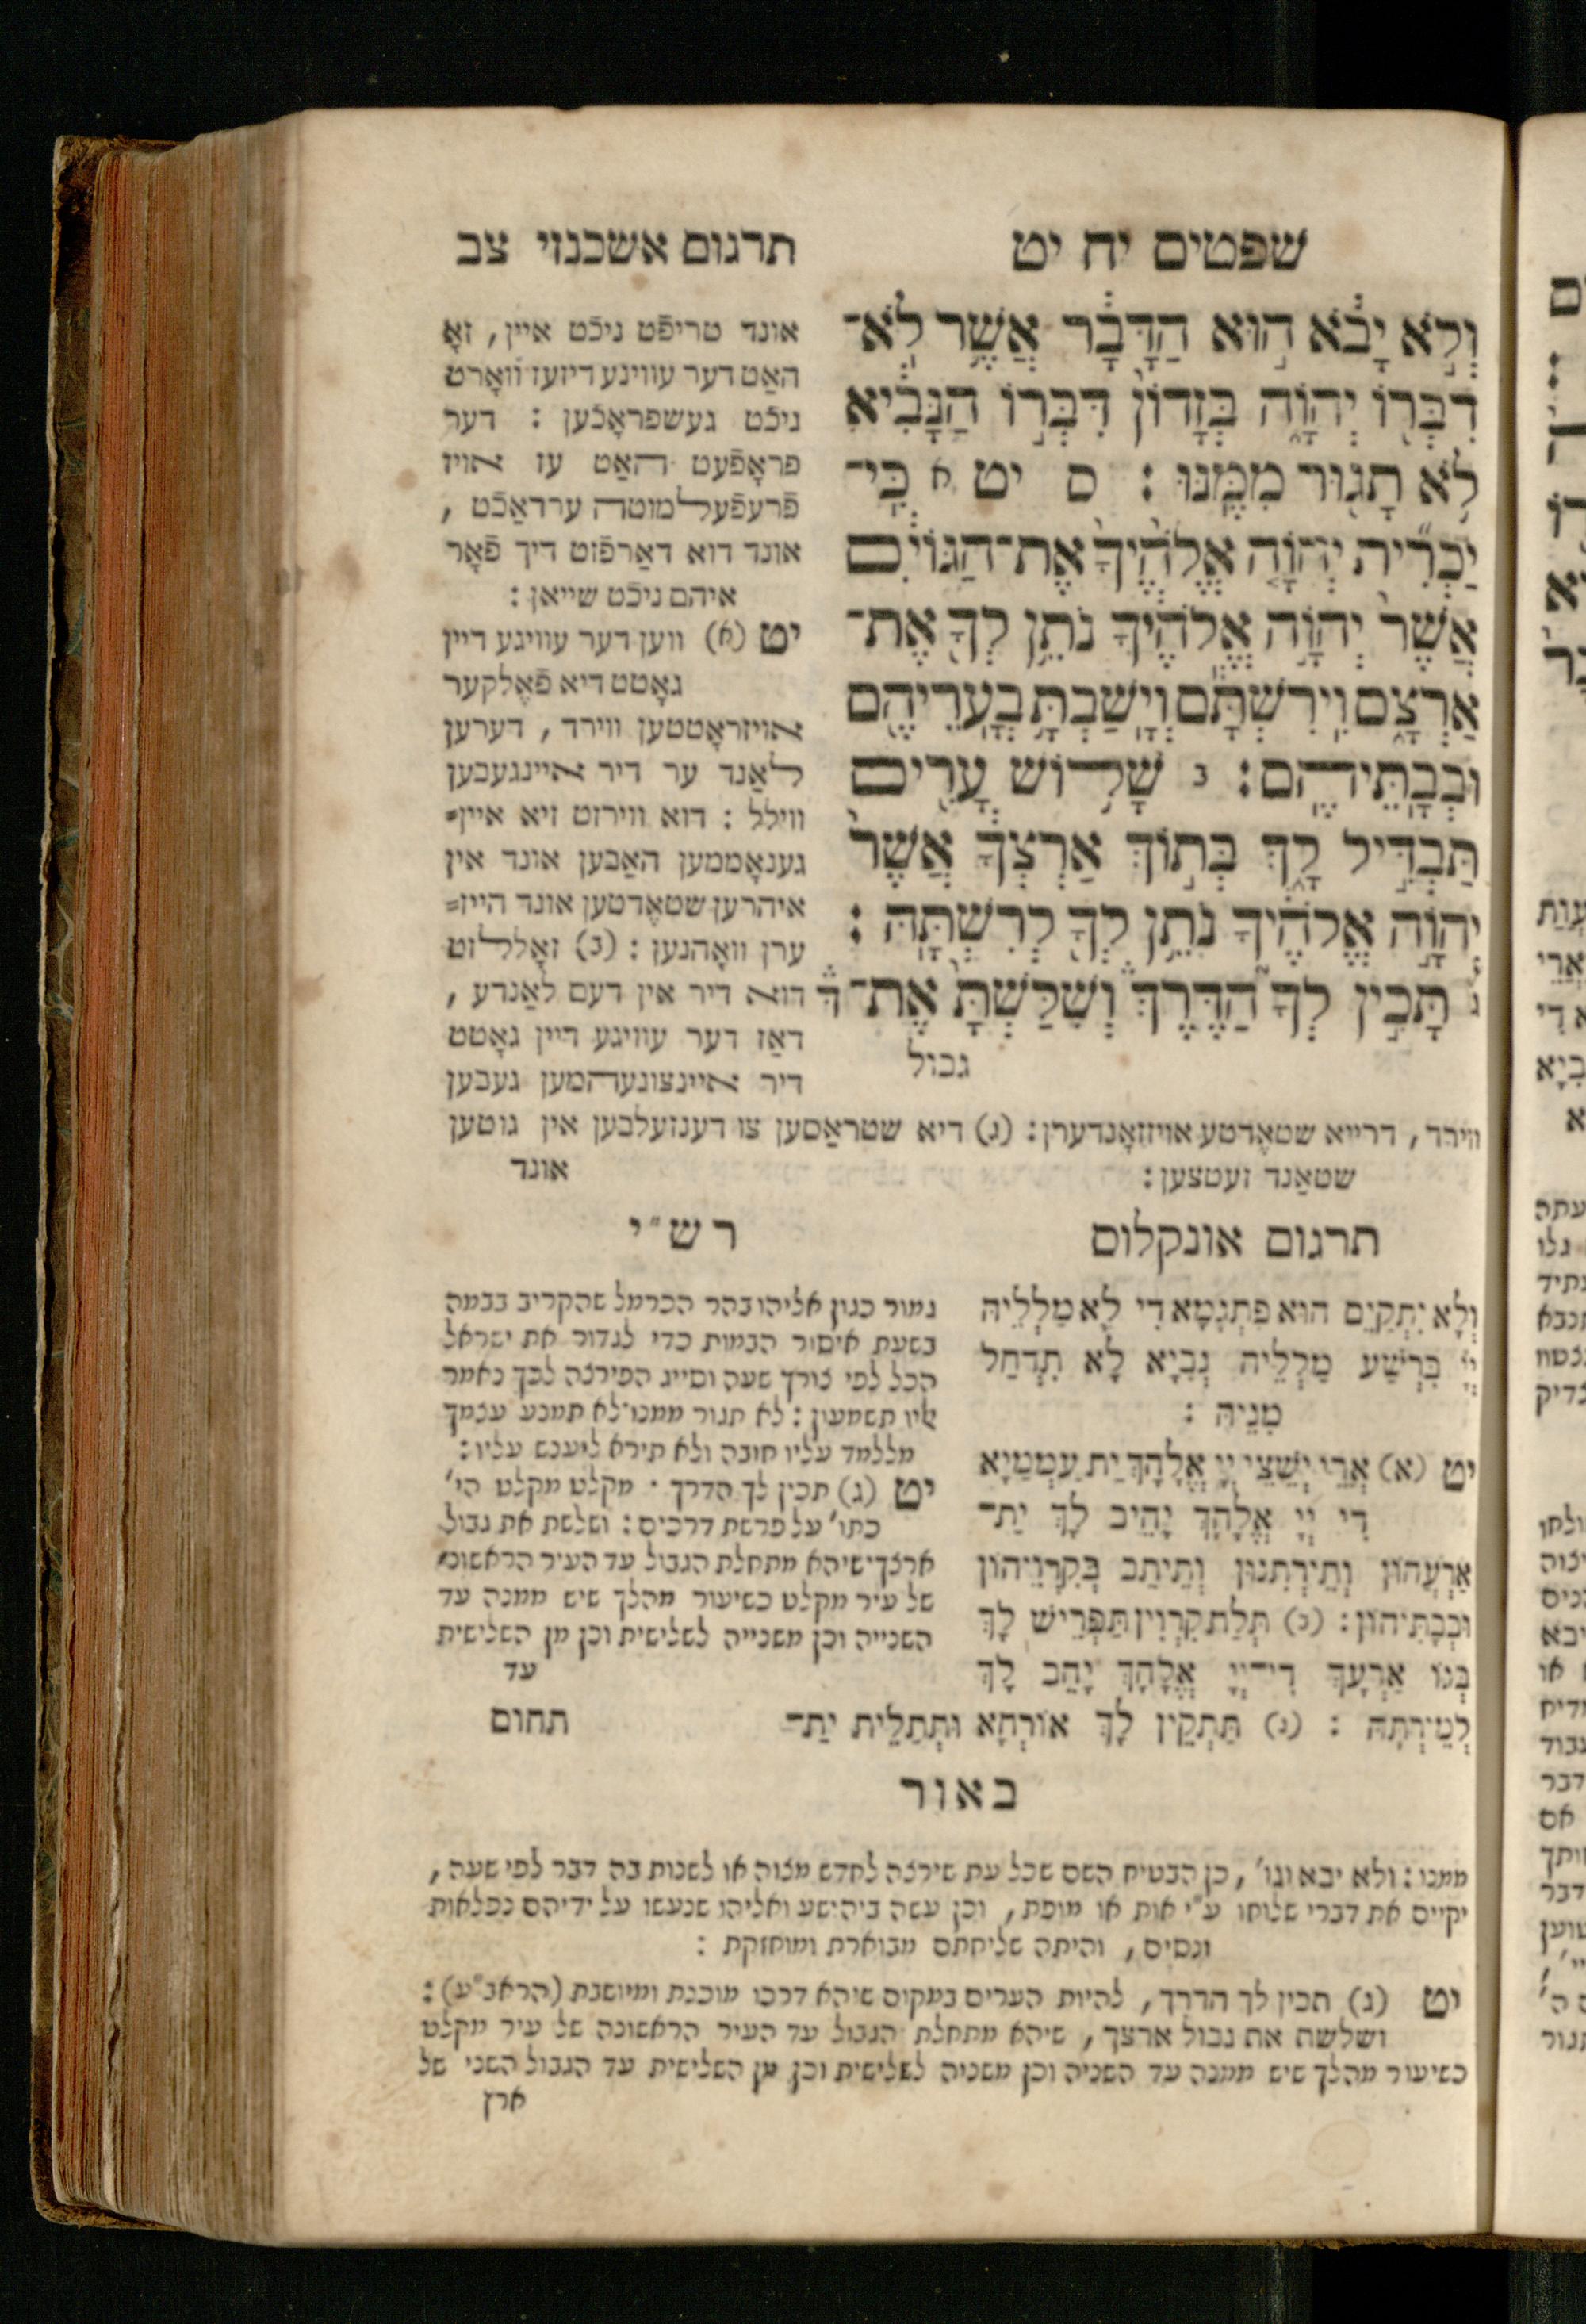 שפטים יח יט
תרגום אשכנזי צב
וְלֹ֣א יָבֹ֔א ה֣וּא הַדָּבָ֔ר אֲשֶׁ֥ר לֹֽא־
דִבְּר֖וֹ יְהוָ֑ה בְּזָדוֹן֙ דִּבְּר֣וֹ הַנָּבִ֔יא
לֹ֥א תָג֖וּר מִמֶּֽנּוּ : ס יט א כִּֽי־
יַכְרִ֞ית יְהוָ֤ה אֱלֹהֶ֙יךָ֙ אֶת־הַגּוֹיִ֔ם
אֲשֶׁר֙ יְהוָ֣ה אֱלֹהֶ֔יךָ נֹתֵ֥ן לְךָ֖ אֶת־
אַרְצָ֑ם וִֽירִשְׁתָּ֕ם וְיָֽשַׁבְתָּ֥ בְעָֽרֵיהֶ֖ם
וּבְבָֽתֵּיהֶֽם : ב שָׁל֥וֹשׁ עָרִ֖ים
תַּבְדִּ֣יל לָ֑ךְ בְּת֣וֹךְ אַרְצְךָ֔ אֲשֶׁר֙
יְהוָ֣ה אֱלֹהֶ֔יךָ נֹתֵ֥ן לְךָ֖ לְרִשְׁתָּֽהּ :
ג תָּכִ֣ין לְךָ֮ הַדֶּרֶךְ֒ וְשִׁלַּשְׁתָּ֙ אֶת־
גבול
אונד טריפֿט ניכֿט איין, זאָ
האַט דער עוויגע דיזעז וואָרט
ניכֿט געשפראָכֿען : דער
פראָפֿעט האַט עז אויז
פֿרעפֿעלמוטה ערדאַכֿט ,
אונד דוא דאַרפֿזט דיך פֿאָר
איהם ניכֿט שייאן :
יט (א) ווען דער עוויגע דיין
גאָטט דיא פֿאֶלקער
אויזראָטטען ווירד , דערען
לאַנד ער דיר איינגעבען
ווילל : דוא ווירזט זיא איין=
גענאָממען האַבען אונד אין
איהרען שטאֶדטען אונד הייז=
ערן וואָהנען : (ב) זאָללזט
דוא דיר אין דעם לאַנדע ,
דאַז דער עוויגע דיין גאָטט
דיר איינצונעהמען געבען
ווירד , דרייא שטאֶדטע אויזזאָנדערן : (ג) דיא שטראַסען צו דענזעלבען אין גוטען
שטאַנד זעטצען :
אונד
תרגום אונקלוס
וְלָא יִתְקַיֵּם הוּא פִתְגָמָא דִי לָא מַלְלֵיהּ
יְיָ בִּרְשַׁע מַלְלֵיהּ נְבִיָא לָא תִדְחַל
מִנֵּיהּ :
יט (א) אֲרֵי יְשֵׁצֵי יְיָ אֱלָהָךְ יַת עַמְמַיָא
דִי יְיָ אֱלָהָךְ יָהֵיב לָךְ יַת־
אַרְעֲהוֹן וְתֵירְתִנּוּן וְתֵיתֵב בְּקִרְוֵיהוֹן
וּבְבָתֵּיהוֹן : (ב) תְּלַת קִרְוִין תַּפְרֵישׁ לָךְ
בְּגוֹ אַרְעָךְ דִּייְיָ אֱלָהָךְ יָהֵב לָךְ
לְמֵירְתַהּ : (ג) תַּתְקֵין לָךְ אוֹרְחָא וּתְתַלֵּית יַת־
תחום
רש״י
גמור כגון אליהו בהר הכרמל שהקריב בבמה
בשעת איסור הבמות כדי לגדור את ישראל
הכל לפי צורך שעה וסייג הפירצה לכך נאמר
אליו תשמעון : לא תגור ממנו לא תמנע עצמך
מללמד עליו חובה ולא תירא ליענש עליו :
יט (ג) תכין לך הדרך · מקלט מקלט הי׳
כתו׳ על פרשת דרכים : ושלשת את גבול
ארצך שיהא מתחלת הגבול עד העיר הראשונ׳
של עיר מקלט כשיעור מהלך שיש ממנה עד
השנייה וכן משנייה לשלישית וכן מן השלישית
עד
באור
ממנו : ולא יבא וגו׳ , כן הבטיח השם שכל עת שירצה לחדש מצוה או לשנות בה דבר לפי שעה ,
יקיים את דברי שלוחו ע״י אות או מופת , וכן עשה ביהושע ואליהו שנעשו על ידיהם נפלאות
ונסים , והיתה שליחתם מבוארת ומוחזקת :
יט (ג) תכין לך הדרך , להיות הערים במקום שיהא דרכו מוכנת ומיושבת (הראב״ע) :
ושלשת את גבול ארצך , שיהא מתחלת הגבול עד העיר הראשונה של עיר מקלט
כשיעור מהלך שיש ממנה עד השניה וכן משניה לשלישית וכן מן השלישית עד הגבול השני של
ארץ